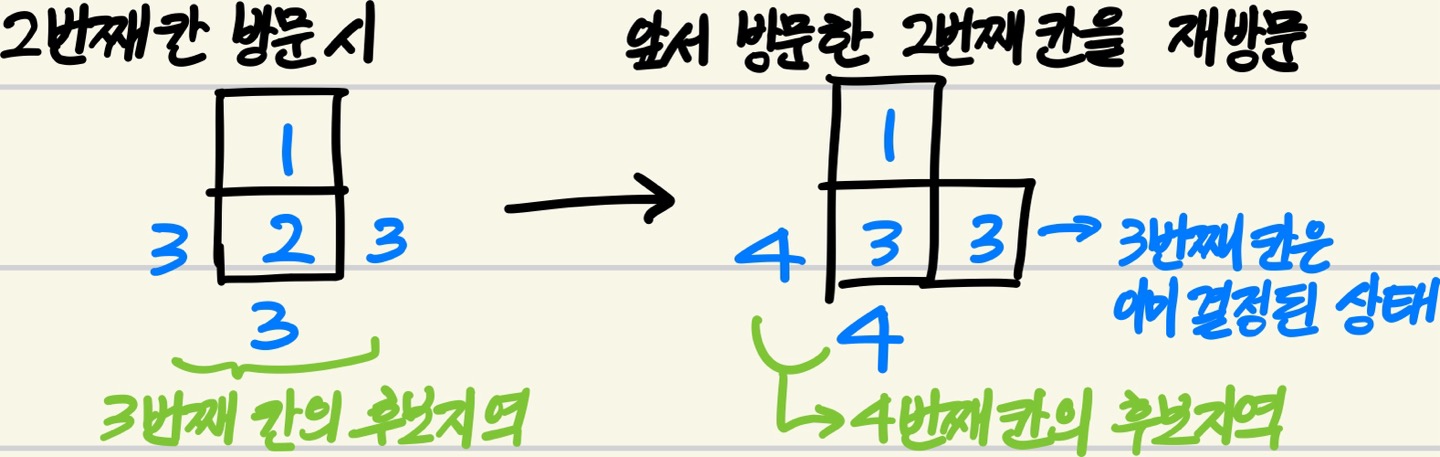 2번째 칸 방문 시
1
3 2 3
3
3번째 칸의 후보지역
앞서 방문한 2번째 칸을 재방문
1
4 3 3 → 3번째 칸은
이미 결정된 상태
4
4번째 칸의 후보지역